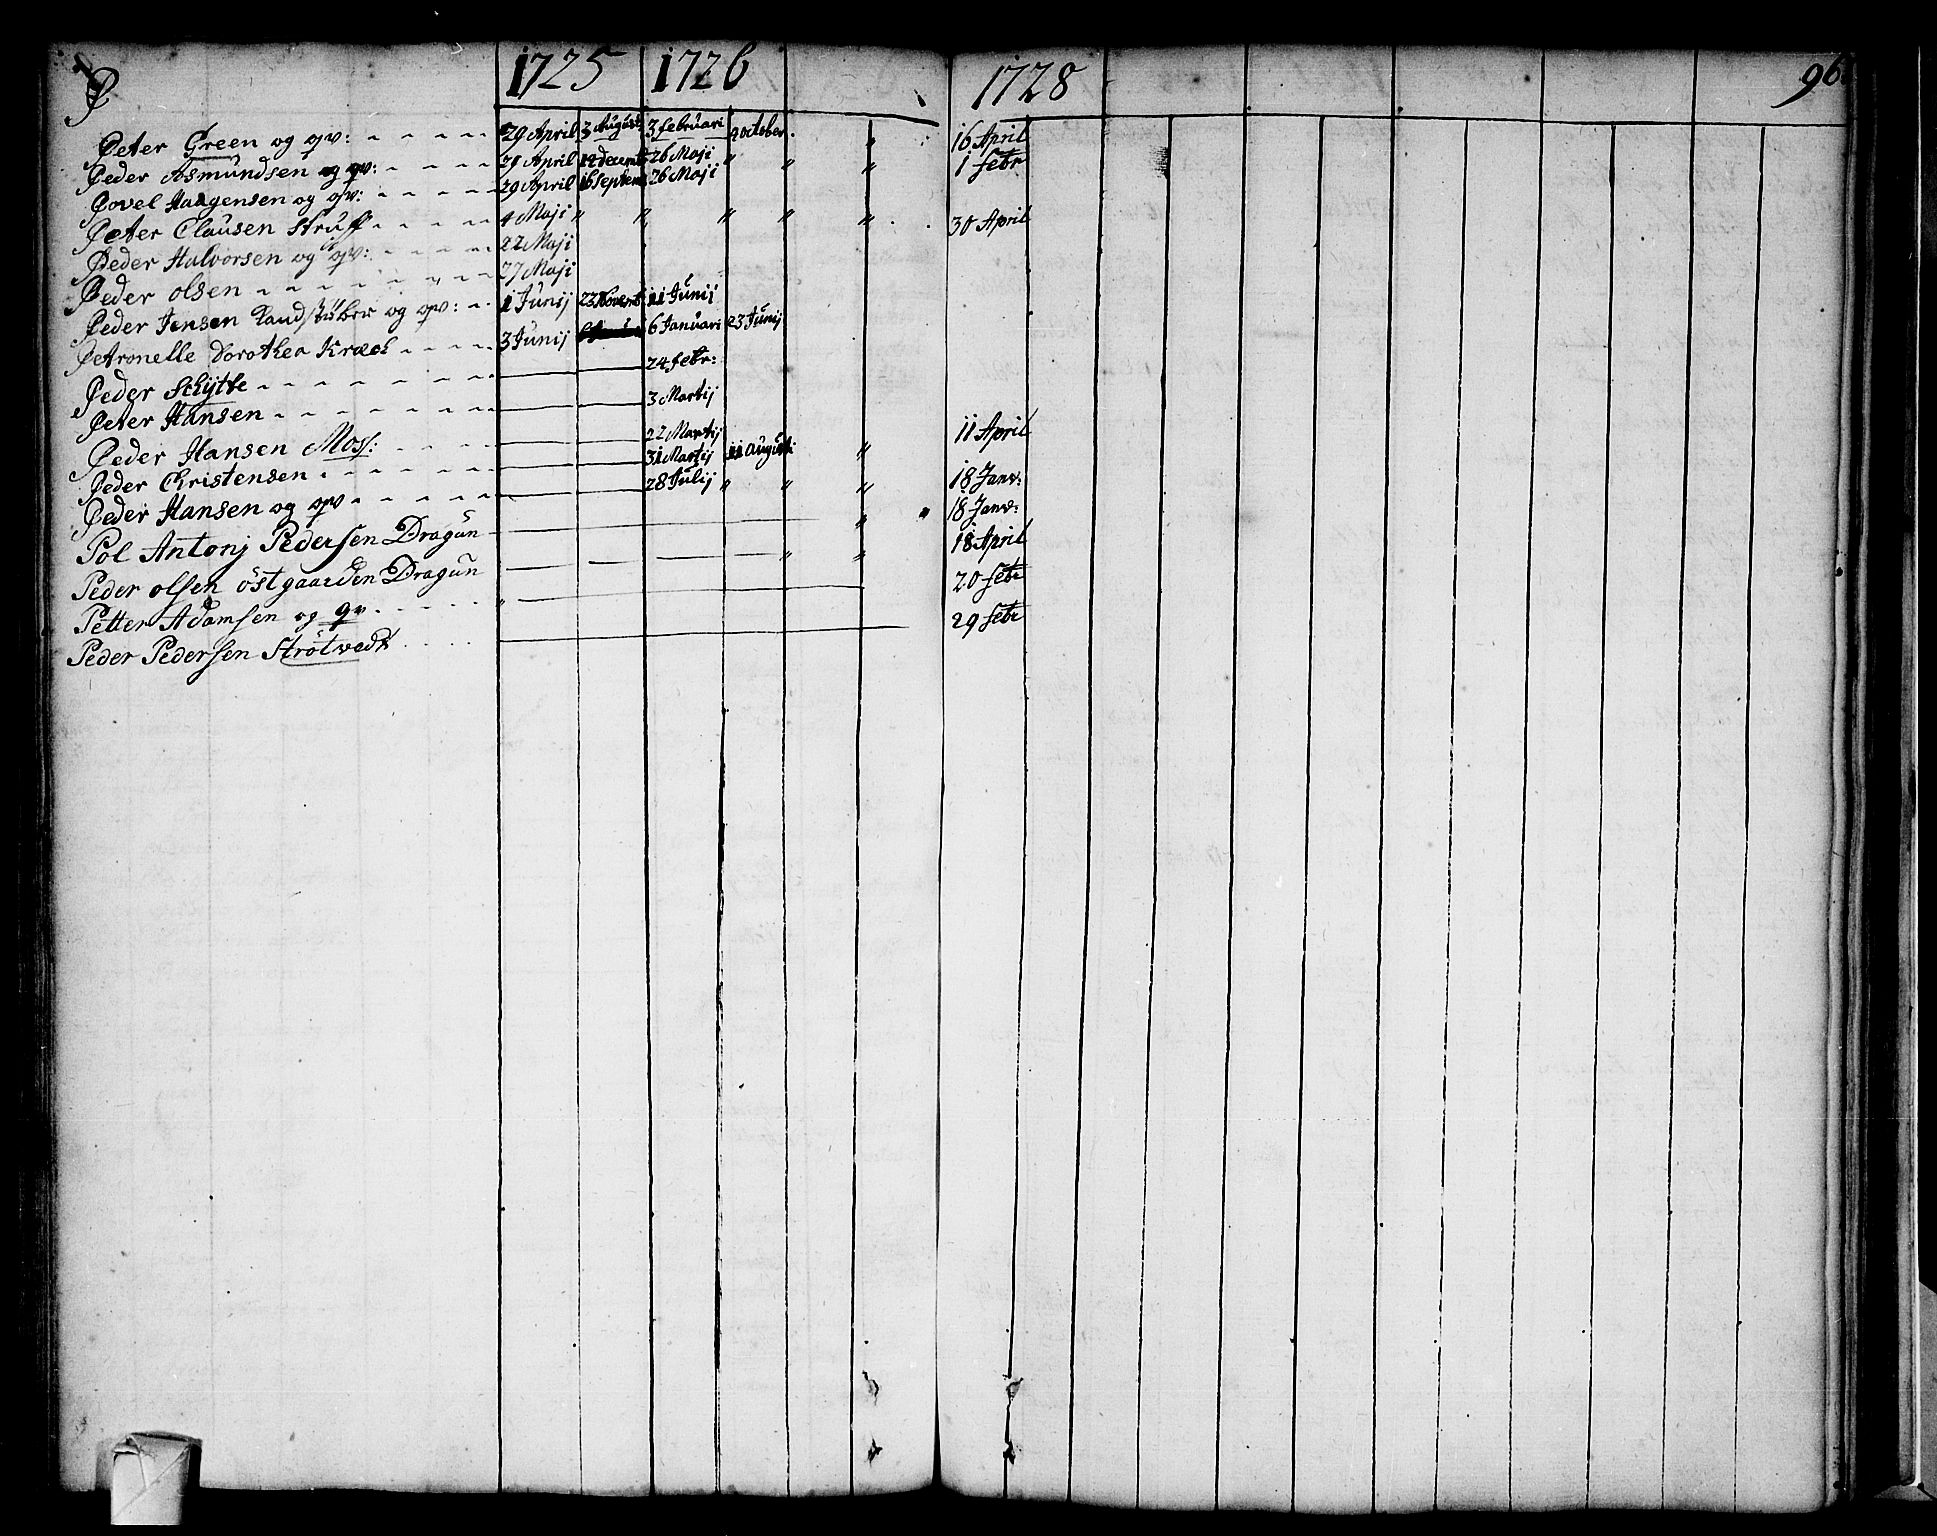 P 1725 1726 1728 96
Peter Green og qv: 29 April 3 August 3 februari 9 October. " 16 April
Peder Asmundsen og qv: 29 April 12 decemb 26 Maji " " " 1 febr
Povel Haagensen og qv: 29 April 16 Septem 26 Maji
Peter Clausen Struss 4 Maji " " " " " 30 April
Peder Halvorsen og qv: 22 Maji
Peder olsen 27 Maji
Peder Jensen Landstüber og qv: 1 Junij 23 Novemb 11 Junij
Petronelle Dorothea Kræch 3 Junij 6 Januari 23 Junij
Peder Schytte 24 febr:
Peter Hansen 3 Martij
Peder Hansen Moss: 22 Martij 11 April
Peder Christensen 31 Martij 11 Augusti "
Peder Hansen og qv 28 Julij " " " 18 Janv:
Pol Antonj Pedersen Dragun " 18 Janv:
Peder olsen östgaarden Dragun " " 18 April
Petter Adamsen og qv 20 febr
Peder Pedersen Strötvedt 29 febr